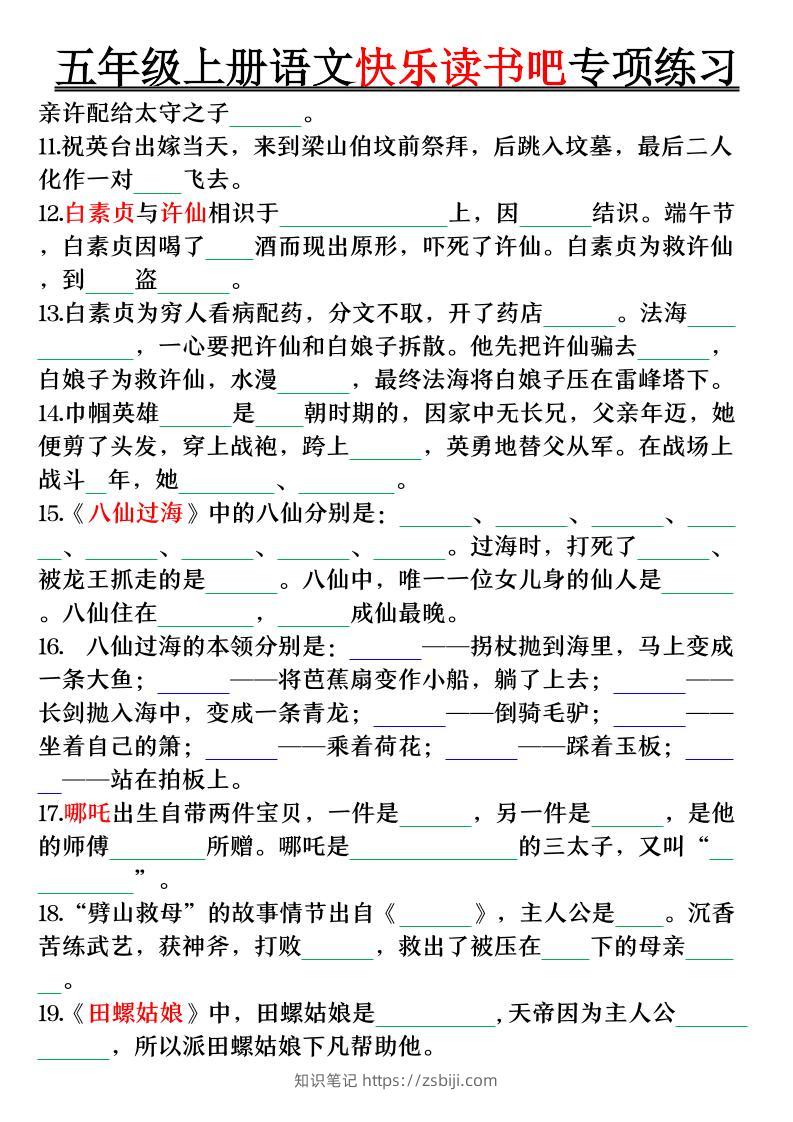 五年级上册语文快乐读书吧专项练习
亲许配给太守之子______。
11.祝英台出嫁当天，来到梁山伯坟前祭拜，后跳入坟墓，最后二人
化作一对____飞去。
12.白素贞与许仙相识于______________上，因______结识。端午节
，白素贞因喝了____酒而现出原形，吓死了许仙。白素贞为救许仙
，到____盗______。
13.白素贞为穷人看病配药，分文不取，开了药店______。法海____
________，一心要把许仙和白娘子拆散。他先把许仙骗去______，
白娘子为救许仙，水漫______，最终法海将白娘子压在雷峰塔下。
14.巾帼英雄______是____朝时期的，因家中无长兄，父亲年迈，她
便剪了头发，穿上战袍，跨上______，英勇地替父从军。在战场上
战斗__年，她________、________。
15.《八仙过海》中的八仙分别是：______、______、______、____
__、______、______、______、______。过海时，打死了______、
被龙王抓走的是______。八仙中，唯一一位女儿身的仙人是______
。八仙住在________，______成仙最晚。
16. 八仙过海的本领分别是：______——拐杖抛到海里，马上变成
一条大鱼；______——将芭蕉扇变作小船，躺了上去；______——
长剑抛入海中，变成一条青龙；______——倒骑毛驴；______——
坐着自己的箫；______——乘着荷花；______——踩着玉板；____
__——站在拍板上。
17.哪吒出生自带两件宝贝，一件是______，另一件是______，是他
的师傅________所赠。哪吒是______________的三太子，又叫“__
________”。
18.“劈山救母”的故事情节出自《______》，主人公是____。沉香
苦练武艺，获神斧，打败______，救出了被压在____下的母亲____
__。
19.《田螺姑娘》中，田螺姑娘是__________,天帝因为主人公______
______，所以派田螺姑娘下凡帮助他。
知识笔记 https://zsbiji.com